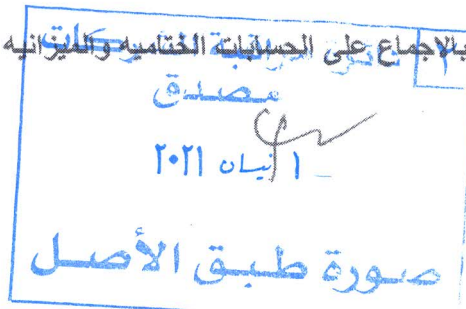 بالاجماع على الحسابات الختاميه والميزانيه
مصدق
١ نيسان ٢٠٢١
صورة طبق الأصل